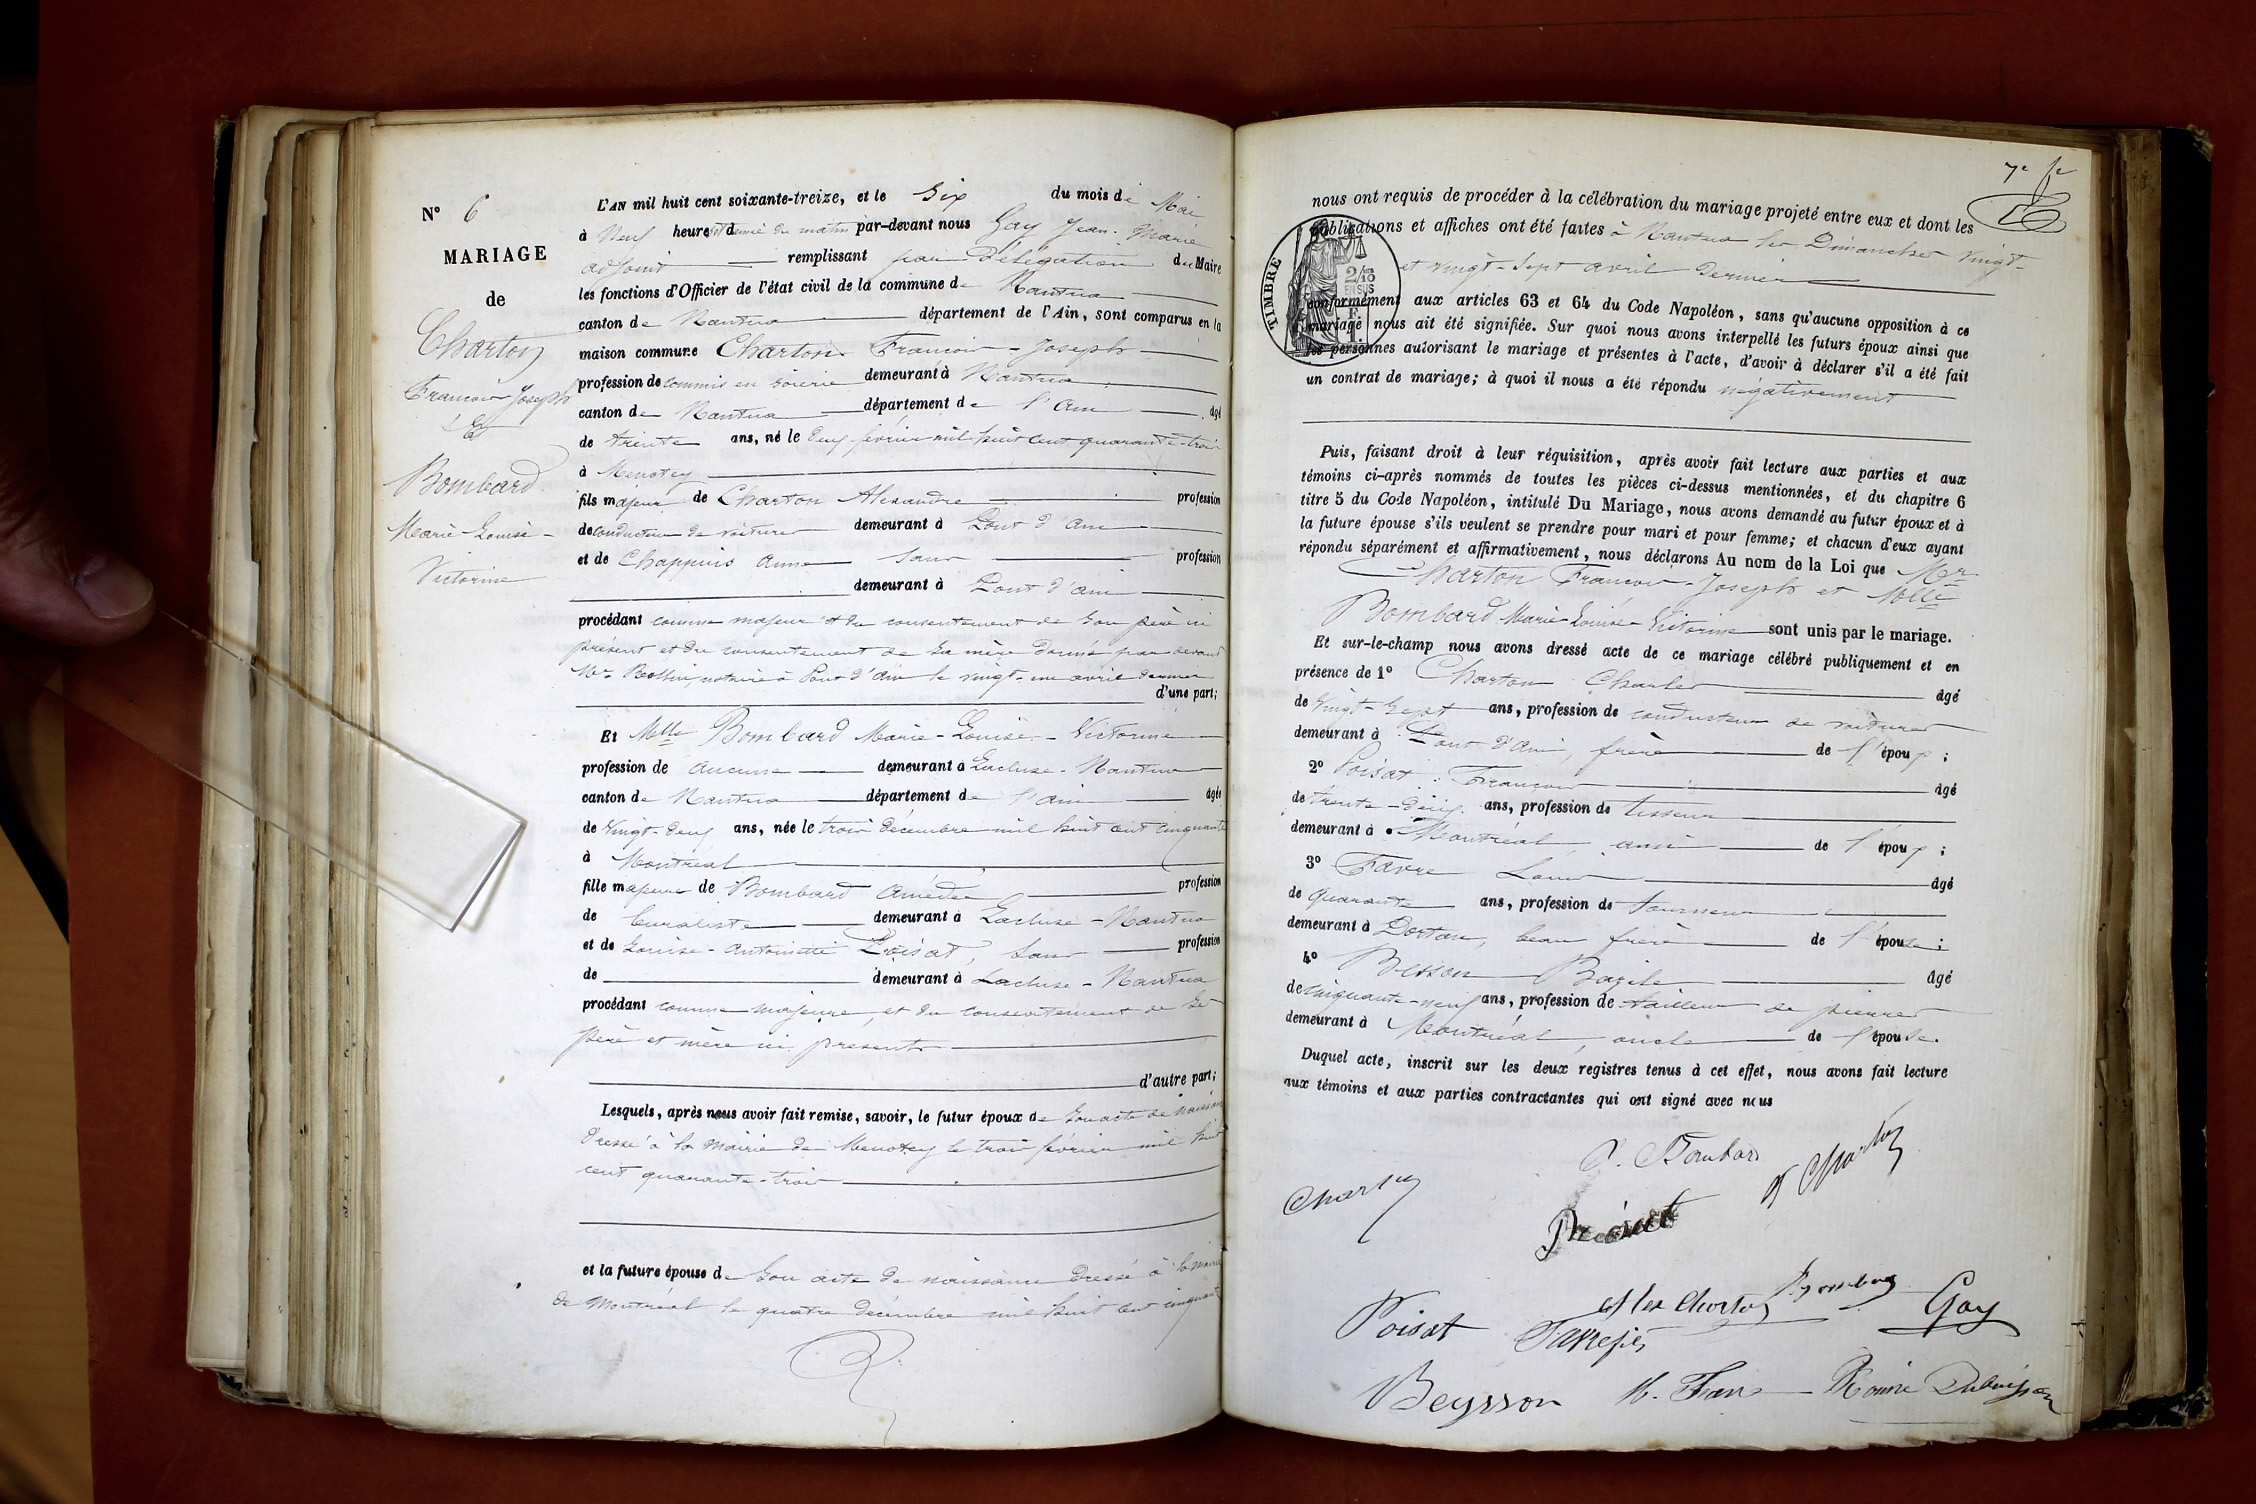 N° 6
MARIAGE
de
Charton
François Joseph
&
Bombard
Marie-Louise-
Victorine
L'AN mil huit cent soixante-treize, et le Six du mois de Mai
à Neuf heures et demie du matin par-devant nous Gay Jean-Marie
adjoint remplissant par Délégation du Maire
les fonctions d'Officier de l'état civil de la commune de Nantua
canton de Nantua département de l'Ain, sont comparus en la
maison commune Charton François-Joseph
profession de commis en soierie demeurant à Nantua
canton de Nantua département de l'Ain âgé
de trente ans, né le deux février mil huit cent quarante-trois
à Menotey
fils majeur de Charton Alexandre profession
de conducteur de voitures demeurant à Pont d'Ain
et de Chappuis Anne sans profession
demeurant à Pont d'Ain
procédant comme majeur et du consentement de son père ici
présent et du consentement de sa mère donné par devant
Me notaire à Pont d'Ain le vingt-un avril dernier
d'une part;
Et Melle Bombard Marie-Louise-Victorine
profession de aucune demeurant à Lacluse-Nantua
canton de Nantua département de l'Ain âgée
de vingt-deux ans, née le trois décembre mil huit cent cinquante
à Montréal
fille majeure de Bombard Amédée profession
de demeurant à Lacluse-Nantua
et de Louise-Antoinette Poisat, sans profession
de demeurant à Lacluse-Nantua
procédant comme majeure, et du consentement de ses
père et mère ici présents
d'autre part;
Lesquels, après nous avoir fait remise, savoir, le futur époux de son acte de naissance
dressé à la mairie de Menotey le trois février mil huit
cent quarante-trois
et la future épouse de son acte de naissance dressé à la mairie
de Montréal le quatre décembre mil huit cent cinquante
7e fe
nous ont requis de procéder à la célébration du mariage projeté entre eux et dont les
publications et affiches ont été faites à Nantua les Dimanches vingt-
et vingt-sept avril dernier
conformément aux articles 63 et 64 du Code Napoléon, sans qu'aucune opposition à ce
mariage nous ait été signifiée. Sur quoi nous avons interpellé les futurs époux ainsi que
les personnes autorisant le mariage et présentes à l'acte, d'avoir à déclarer s'il a été fait
un contrat de mariage; à quoi il nous a été répondu négativement
TIMBRE
2/10
EN SUS
Puis, faisant droit à leur réquisition, après avoir fait lecture aux parties et aux
témoins ci-après nommés de toutes les pièces ci-dessus mentionnées, et du chapitre 6
titre 5 du Code Napoléon, intitulé Du Mariage, nous avons demandé au futur époux et à
la future épouse s'ils veulent se prendre pour mari et pour femme; et chacun d'eux ayant
répondu séparément et affirmativement, nous déclarons Au nom de la Loi que Mr
Charton François-Joseph et Melle
Bombard Marie-Louise-Victorine sont unis par le mariage.
Et sur-le-champ nous avons dressé acte de ce mariage célébré publiquement et en
présence de 1° Charton Charles âgé
de vingt-sept ans, profession de conducteur de voitures
demeurant à Pont d'Ain, frère de l'époux;
2° Poisat François âgé
de trente-deux ans, profession de tisseur
demeurant à Montréal, ami de l'époux;
3° Favre Louis âgé
de quarante ans, profession de tourneur
demeurant à Dortan, beau frère de l'épouse;
4° Besson Bazile âgé
de cinquante-neuf ans, profession de tailleur de pierres
demeurant à Montréal, oncle de l'épouse.
Duquel acte, inscrit sur les deux registres tenus à cet effet, nous avons fait lecture
aux témoins et aux parties contractantes qui ont signé avec nous
Bombard
Charton
Charton
Poisat
Alex Charton
Bombard
Gay
Beysson